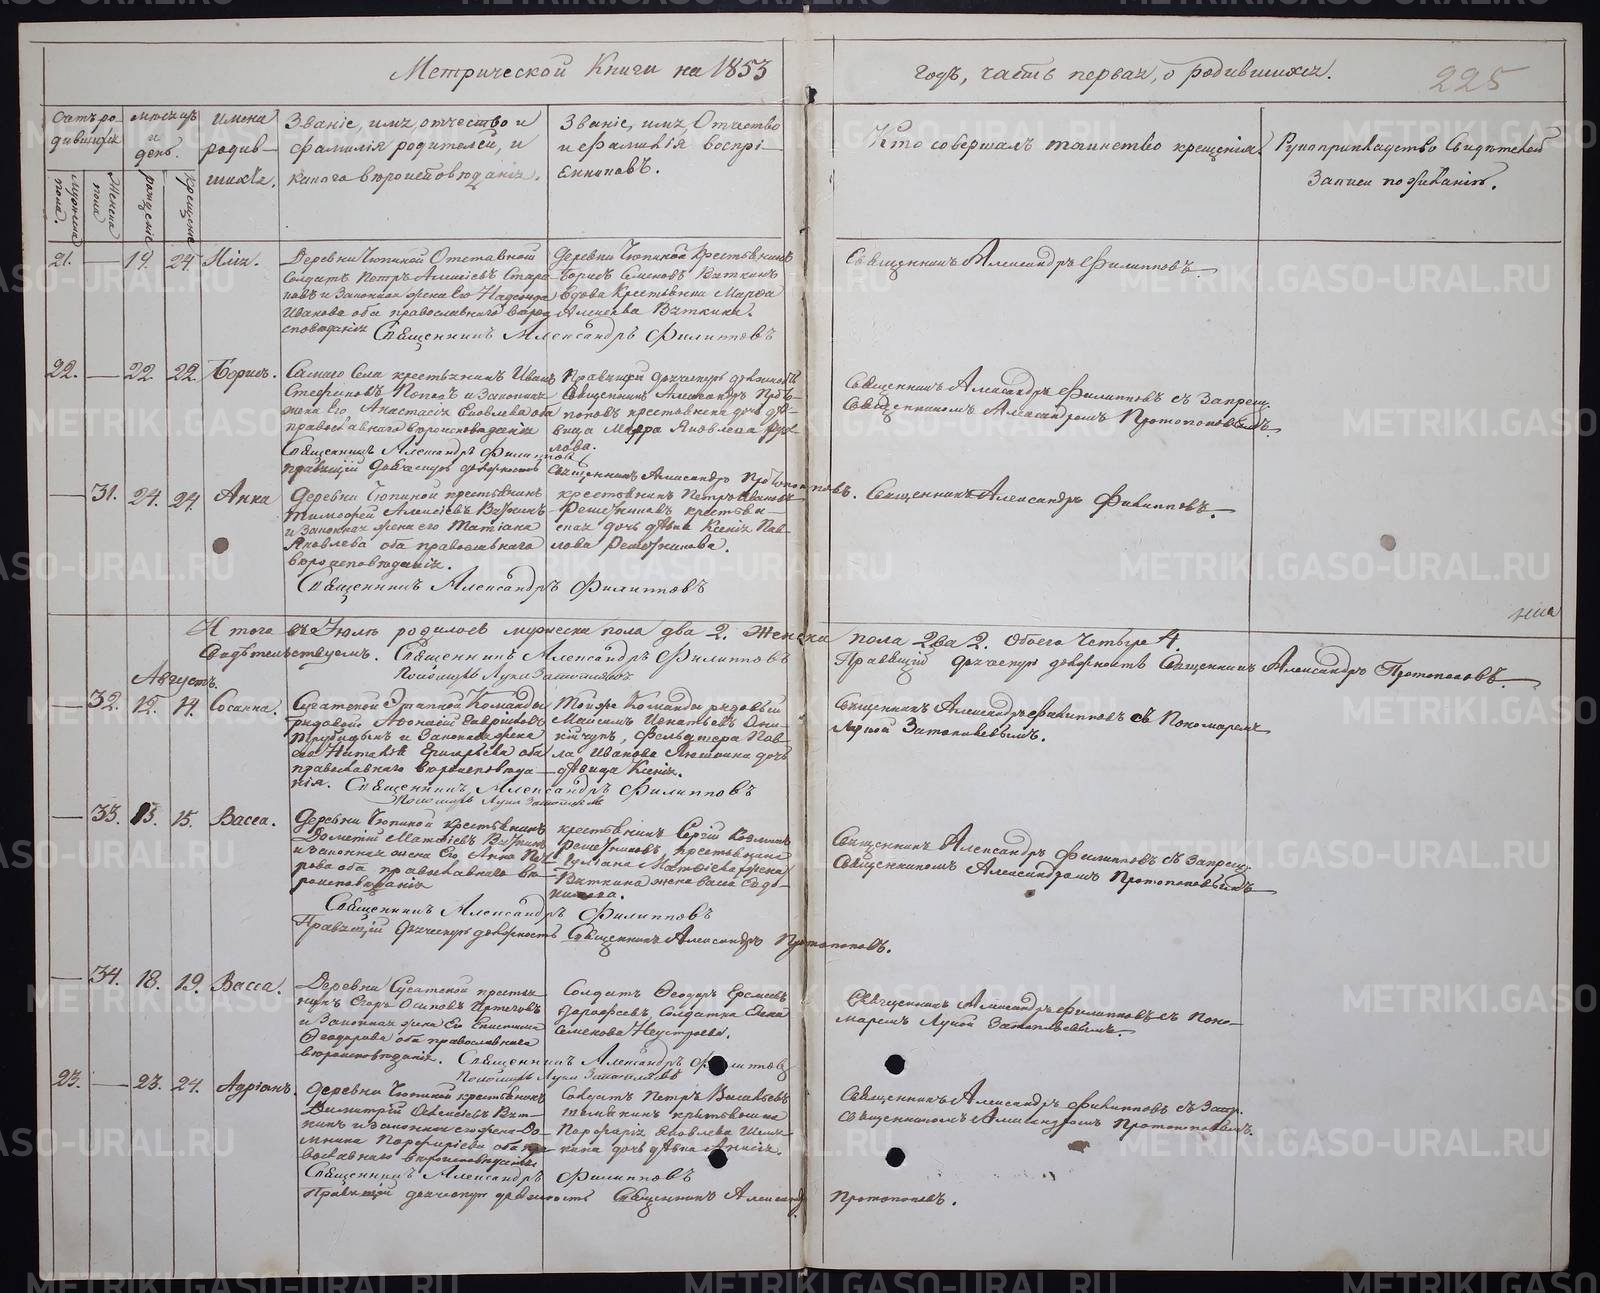 Метрической Книги на 1853
годъ, часть первая, о родившихся.
225
Счетъ ро-
дившихся
мѣсяцъ
и
день.
Имена
родив-
шихся.
Званіе, имя, отчество и
фамилія родителей, и
какого вѣроисповѣданія.
Званіе, имя, Отчество
и Фамилія воспрі-
емниковъ.
Кто совершалъ таинство крещенія.
Рукоприкладство Свидѣтелей
Записи по желанію.
мужеска
пола.
Женска
пола
рожденіе
крещеніе
21. — 19. 24. Илія.
Деревни Чюпиной Отставной
Солдатъ Петръ Алексіевъ
и Законная жена Его Надежда
Иванова оба православнаго вѣрои-
сповѣданія
Священникъ Александръ Филипповъ
Деревни Чюпиной Крестьянинъ
Борисъ Семеновъ Вяткинъ
Вдова Крестьянка Марфа
Алексіева Вяткина.
Священникъ Александръ Филипповъ.
22. — 22 22. Борисъ.
Самаго Села крестьянинъ Иванъ
Стефановъ Поповъ и Законная
жена Его, Анастасія Яковлева оба
православнаго вѣроисповѣданія
Священникъ Александръ Филипповъ
Правящій Дьяческую должность Священникъ Александръ Протопоповъ.
Правящій дьяческую должность
Священникъ Александръ Прото-
поповъ крестьянска дочь дѣ-
вица Марфа Яковлева
лова.
Священникъ Александръ Филипповъ съ Запрещ.
Священникомъ Александромъ Протопоповымъ.
— 31. 24. 24. Анна
Деревни Чюпиной крестьянинъ
Тимофей Алексіевъ Вяткинъ
и Законная жена его Татіана
Яковлева оба православнаго
вѣроисповѣданія.
Священникъ Александръ Филипповъ
крестьянинъ Петръ Ивановъ
Решетниковъ крестьян-
ская дочь дѣвка Ксенія Пав-
лова Решетникова.
Священникъ Александръ Филипповъ.
Итого въ Іюлѣ родилось мужеска пола два 2. Женска пола два 2. Обоего Четыре 4.
Свидѣтельствуемъ. Священникъ Александръ Филипповъ
Правящій дьяческую должность Священникъ Александръ Протопоповъ.
Пономарь Лука Затопляевъ
Августъ.
— 32. 12. 14. Сосанна.
Сугатской Этапной Команды
рядовой Афонасій Гавриловъ
Трубицынъ и Законная жена
православнаго вѣроисповѣда-
нія. Священникъ Александръ Филипповъ
Пономарь Лука Затопляевъ
Той же Команды рядовый
Максимъ Игнатьевъ Они-
кичукъ, Фельдшера Пав-
ла Иванова Алешина дочь
дѣвица Ксенія.
Священникъ Александръ Филипповъ съ Пономаремъ
Лукой Затопляевымъ.
— 33. 13. 15. Васса.
Деревни Чюпиной крестьянинъ
Дометій Матфіевъ Вяткинъ
и законная жена Его, Анна Пет-
рова оба православнаго вѣ-
роисповѣданія
Священникъ Александръ Филипповъ
Правящій дьяческую должность Священникъ Александръ Протопоповъ.
крестьянинъ Сергій Козминъ
Решетниковъ, крестьянина
Іуліана Матфіева
Вяткина жена
Священникъ Александръ Филипповъ съ Запрещ.
Священникомъ Александромъ Протопоповымъ
— 34. 18. 19. Васса.
Деревни Сугатской кресть-
нинъ Егоръ Осиповъ
и Законная жена Его
Феодорова оба православнаго
вѣроисповѣданія. Священникъ Александръ Филипповъ
Пономарь Лука Затопляевъ
Солдатъ Феодоръ Еремеевъ
Дорофеевъ, Солдатка Елена
Семенова Неустроева.
Священникъ Александръ Филипповъ съ Поно-
маремъ Лукой Затопляевымъ.
23. — 23. 24. Адріанъ.
Деревни Чюпиной крестьянинъ
Димитрій Алексіевъ Вят-
кинъ и законная его жена До-
мника Порфиріева оба пра-
вославнаго вѣроисповѣданія
Священникъ Александръ Филипповъ
Правящій дьяческую должность Священникъ Александръ Протопоповъ.
Солдатъ Петръ Васильевъ
Шемякинъ крестьянина
Порфирія Яковлева Шемя-
кина дочь дѣвка Анисія.
Священникъ Александръ Филипповъ съ Запр.
Священникомъ Александромъ Протопоповымъ.